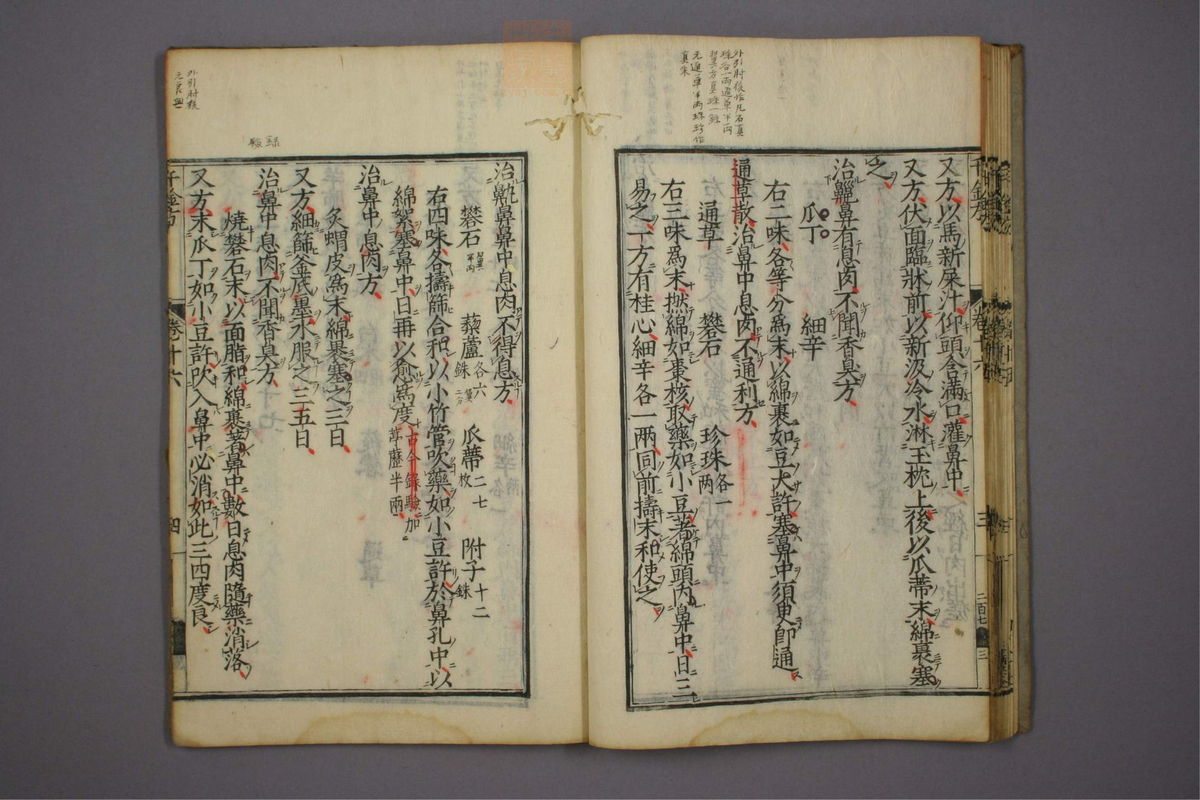 又方以馬新屎汁仰頭含滿口灌鼻中
又方伏面臨牀前以新汲冷水淋玉枕上後以瓜蒂末綿裹塞
之
治齆鼻有息肉不聞香臭方
瓜丁 細辛
右二味各等分為末以綿裹如豆大許塞鼻中須臾即通
通草散治鼻中息肉不通利方
通草 礬石 珍珠各一兩
右三味為末撚綿如棗核取藥如小豆著綿頭內鼻中日三
易之一方有桂心細辛各一兩同前擣末和使之
治鼻中息肉不得息方
礬石 藜蘆各六銖 瓜蒂二七枚 附子十二銖
右四味各擣篩合和以小竹管吹藥如小豆許於鼻孔中以
綿絮塞鼻中日再以愈為度古今錄驗加葶藶半兩
治鼻中息肉方
炙蝟皮為末綿裹塞之三日
又方細篩釜底墨水服之三五日
治鼻中息肉不聞香臭方
燒礬石末以面脂和綿裹著鼻中數日息肉隨藥消落
又方末瓜丁如小豆許吹入鼻中必消如此三四度良
千金方
卷十六
四